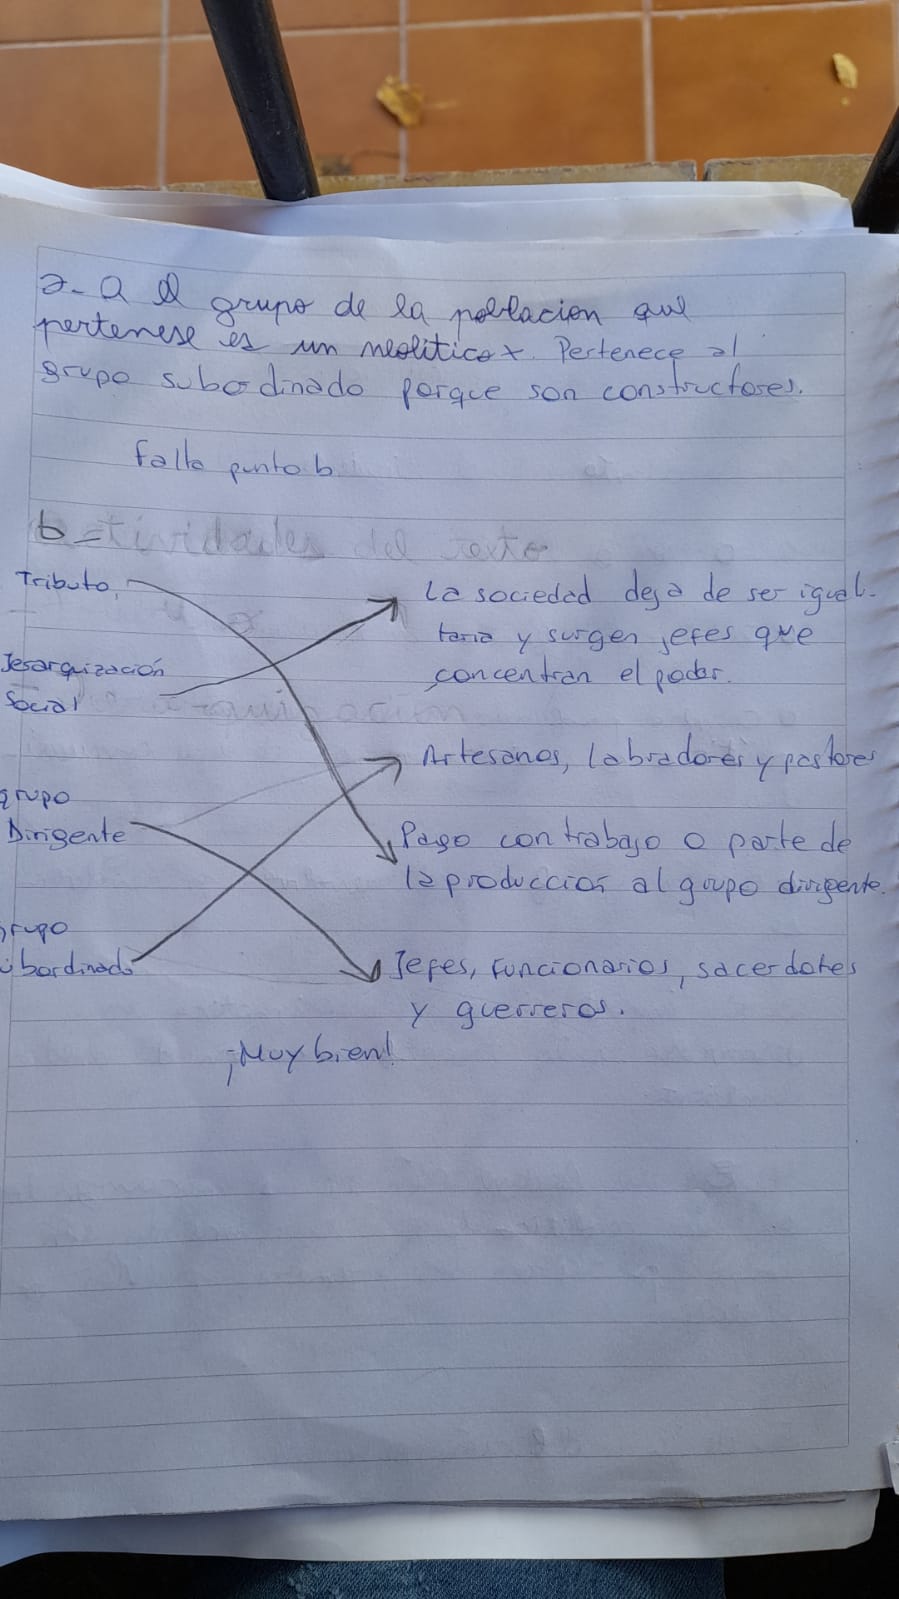 2- a El grupo de la poblacion que
pertenese es un neolitico x. Pertenece al
grupo subordinado porque son constructores.
Falta punto b
b=
Actividades del texto
Tributo
La sociedad deja de ser iguali-
taria y surgen jefes que
concentran el poder.
Jerarquización
Social
Artesanos, labradores y pastores
grupo
Dirigente
Pago con trabajo o parte de
la producción al grupo dirigente.
grupo
subordinado
Jefes, funcionarios, sacerdotes
y guerreros.
¡Muy bien!